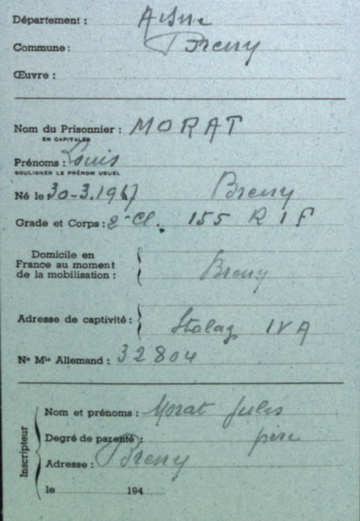 Département : Aisne
Commune : Breny
Œuvre :
Nom du Prisonnier : MORAT
EN CAPITALES
Prénoms : Louis
SOULIGNER LE PRÉNOM USUEL
Né le 30-3.19 Breny
Grade et Corps : 2e Cl. 155 R I F
Domicile en
France au moment
de la mobilisation : Breny
Adresse de captivité : Stalag IV A
No Mle Allemand : 32804
Inscripteur
Nom et prénoms : Morat Jules
Degré de parenté : père
Adresse : Breny
le 194